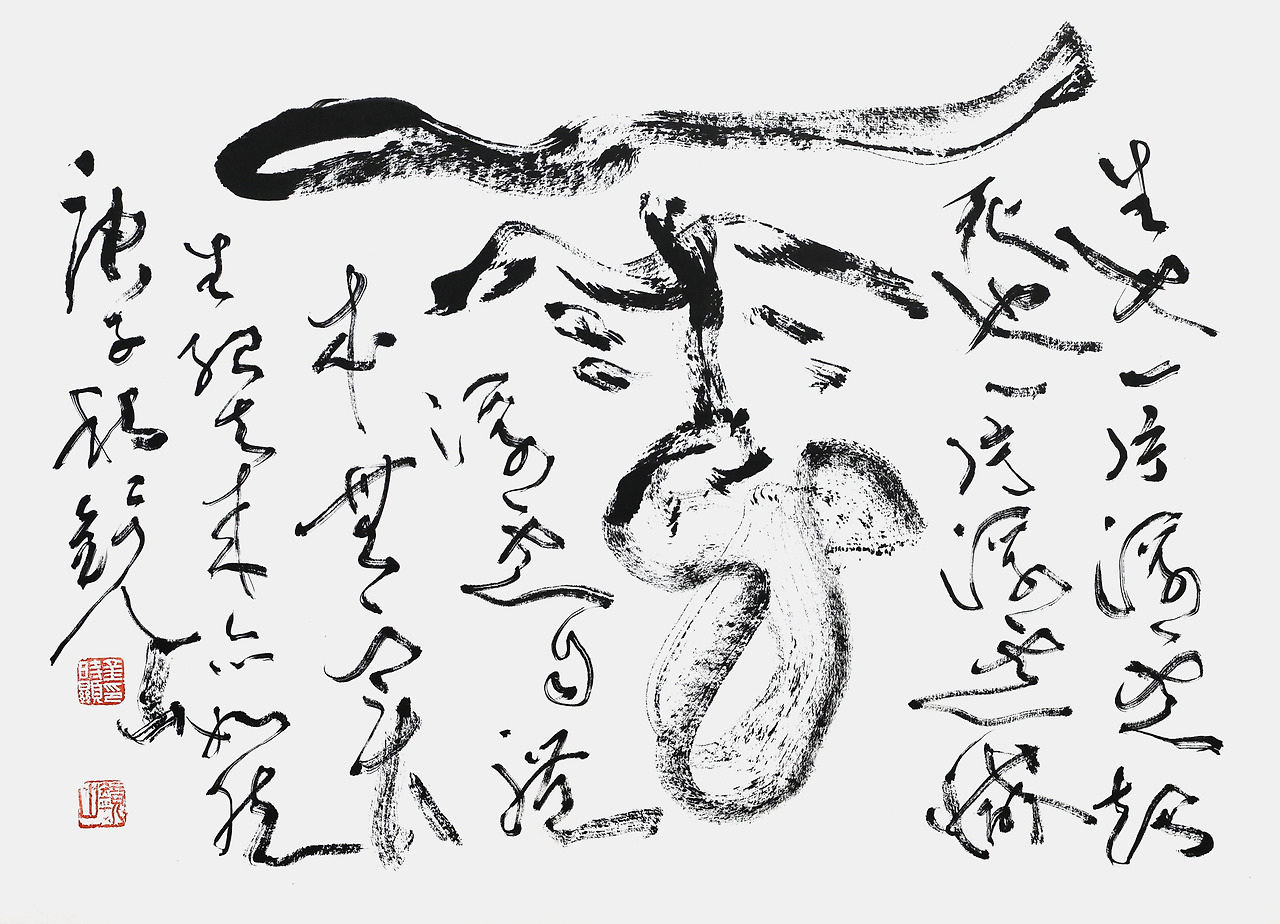 生也一片浮雲起
死也一片浮雲滅
雲
浮雲自體
本無實
生死去來亦如然
庚子秋 鏡山
鏡山